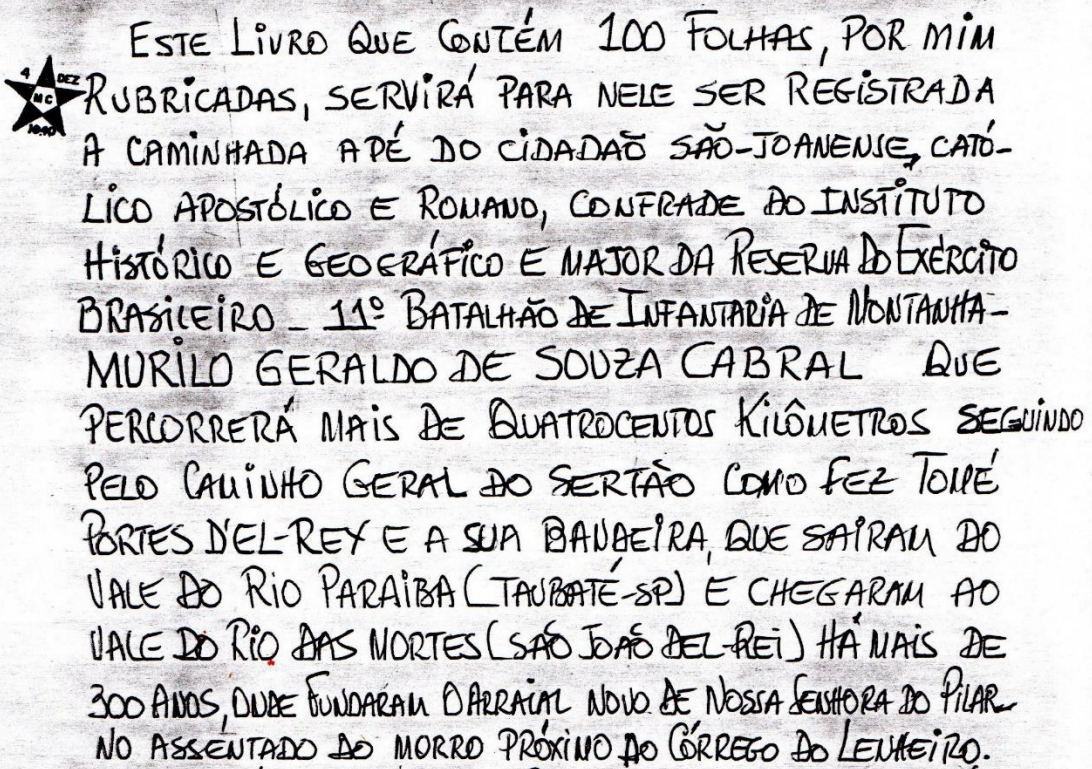 ESTE LIVRO QUE CONTÉM 100 FOLHAS, POR MIM
4 DEZ
MC
RUBRICADAS, SERVIRÁ PARA NELE SER REGISTRADA
A CAMINHADA A PÉ DO CIDADÃO SÃO-JOANENSE, CATÓ-
LICO APOSTÓLICO E ROMANO, CONFRADE DO INSTITUTO
HISTÓRICO E GEOGRÁFICO E MAJOR DA RESERVA DO EXÉRCITO
BRASILEIRO - 11º BATALHÃO DE INFANTARIA DE MONTANHA-
MURILO GERALDO DE SOUZA CABRAL QUE
PERCORRERÁ MAIS DE QUATROCENTOS KILÔMETROS SEGUINDO
PELO CAMINHO GERAL DO SERTÃO COMO FEZ TOMÉ
PORTES D'EL-REY E A SUA BANDEIRA, QUE SAÍRAM DO
VALE DO RIO PARAIBA (TAUBATÉ-SP) E CHEGARAM AO
VALE DO RIO DAS MORTES (SÃO JOÃO DEL-REI) HÁ MAIS DE
300 ANOS, ONDE FUNDARAM O ARRAIAL NOVO DE NOSSA SENHORA DO PILAR
NO ASSENTADO DO MORRO PRÓXIMO DO CÓRREGO DO LENHEIRO.